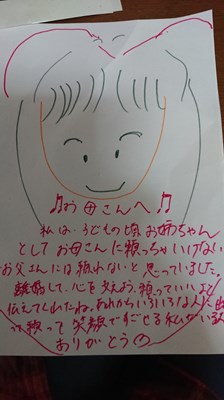 ♫お母さんへ♫
私は、うどもの頃お姉ちゃん
としてお母さんに頼っちゃいけない
お父さんには頼れないと思っていました。
離婚して、心を支えよう、頼っていいよと
伝えてくれたね。あれからいろいろな人に出
って頼って笑顔ですごせる私がいるよ
ありがとう